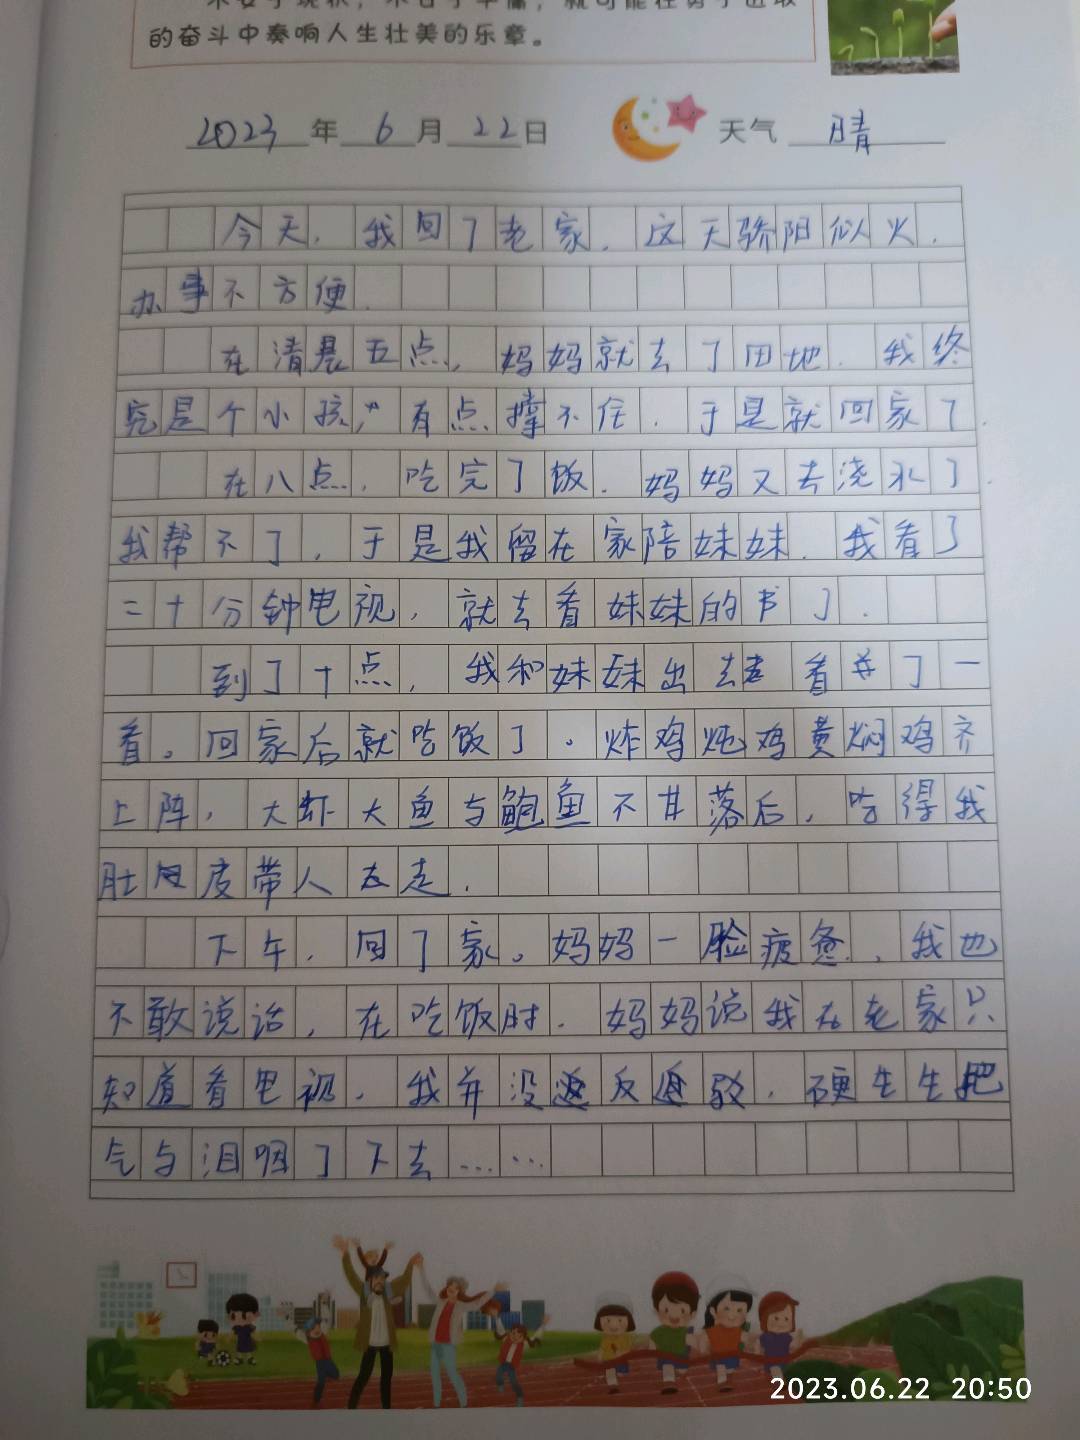 的奋斗中奏响人生壮美的乐章。
2023年6月22日 天气 晴
今天，我回了老家．这天骄阳似火．
办事不方便．
在清晨五点，妈妈就去了田地．我终
究是个小孩，有点撑不住．于是就回家了．
在八点，吃完了饭．妈妈又去浇水了．
我帮不了，于是我留在家陪妹妹．我看了
二十分钟电视，就去看妹妹的书了．
到了十点，我和妹妹出去看了一
看。回家后就吃饭了。炸鸡炖鸡黄焖鸡齐
上阵，大虾大鱼与鲍鱼不甘落后，吃得我
肚皮带人走．
下午，回了家。妈妈一脸疲惫，我也
不敢说话，在吃饭时．妈妈说我在老家只
知道看电视．我并没反驳，硬生生把
气与泪咽了下去……
2023.06.22 20:50